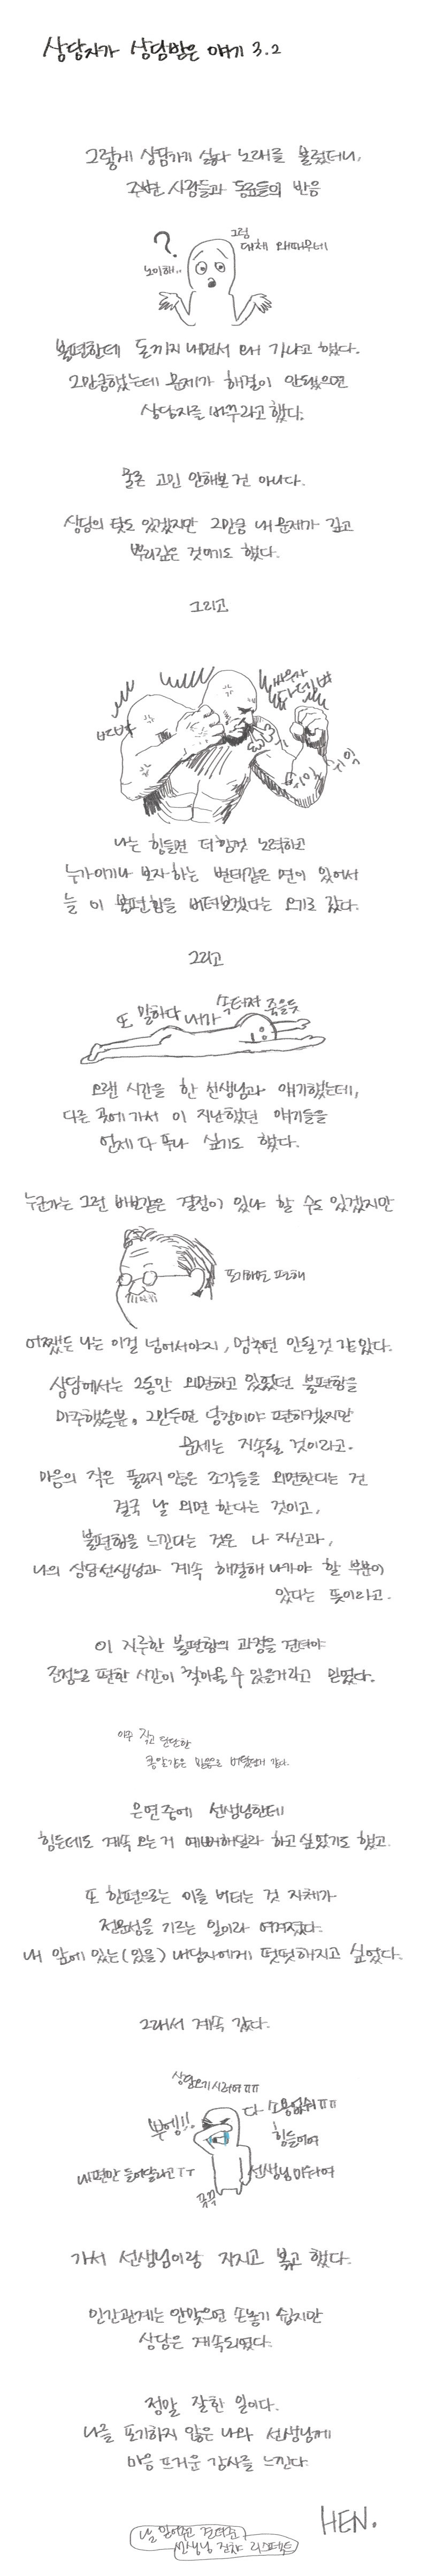 상담자가 상담받은 얘기 3.2
그렇게 상담가기 싫다 노래를 불렀더니,
주변 사람들과 동료들의 반응
?
노이해..
그럼
대체 왜때무네
불편한데 돈까지 내면서 왜 가냐고 했다.
그만큼했는데 문제가 해결이 안됐으면
상담자를 바꾸라고 했다.
물론 고민 안해본 건 아니다.
상담의 탓도 있겠지만 그만큼 내 문제가 깊고
뿌리깊은 것이기도 했다.
그리고
빠박
싸우자
다 덤벼
쉬익 쉬익
나는 힘들면 더 힘껏 노력하고
누가이기나 보자 하는 변태같은 면이 있어서
늘 이 불편함을 버텨보겠다는 오기로 갔다.
그리고
또 말하다 내가 속터져 죽을듯
오랜 시간을 한 선생님과 얘기했는데,
다른 곳에 가서 이 지난했던 얘기들을
언제 다 푸나 싶기도 했다.
누군가는 그런 바보같은 결정이 있냐 할 수도 있겠지만
포기하면 편해
어쨌든 나는 이걸 넘어서야지, 멈추면 안될 것 같았다.
상담에서는 그동안 외면하고 있었던 불편함을
마주했을뿐, 그만두면 당장이야 편하겠지만
문제는 지속될 것이라고.
마음의 작은 풀리지 않은 조각들을 외면한다는 건
결국 날 외면 한다는 것이고,
불편함을 느낀다는 것은 나 자신과,
나의 상담선생님과 계속 해결해 나가야 할 부분이
있다는 뜻이라고.
이 지루한 불편함의 과정을 견뎌야
진정으로 편한 시간이 찾아올 수 있을거라고 믿었다.
아주 작고 단단한
콩알같은 믿음으로 버텼던거 같다.
은연중에 선생님한테
힘든데도 계속 오는 거 예뻐해달라 하고 싶었기도 했고.
또 한편으로는 이를 버티는 것 자체가
전문성을 기르는 일이라 여겨졌다.
내 앞에 있는(있을) 내담자에게 떳떳해지고 싶었다.
그래서 계속 갔다.
상담오기 시러여ㅠㅠ
뿌엥!!
다 소용업쒀ㅠㅠ
힘들어여
내편만 들어달라고ㅜㅜ
선생님 미워여
가서 선생님이랑 지지고 볶고 했다.
인간관계는 안맞으면 손놓기 쉽지만
상담은 계속되었다.
정말 잘한 일이다.
나를 포기하지 않은 나와 선생님께
마음 뜨거운 감사를 느낀다.
HEN.
선생님 정말 리스펙트